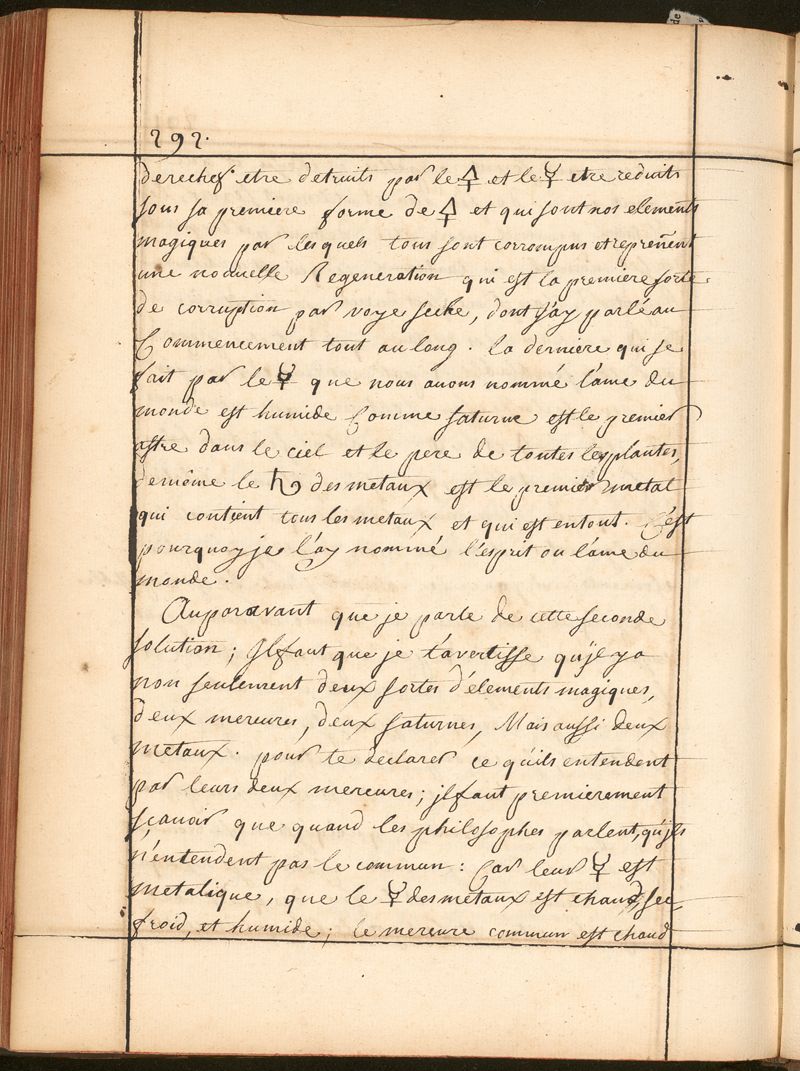 292.
derechef etre detruits par le 🜍 et le ☿ etre reduits
sous sa premiere forme de 🜍 et qui sont nos elements
magiques par lesquels tous sont corrompus et repren̄ent
une nouuelle Regeneration qui est la premiere sorte
de corruption par voye seche, dont j'ay parlé au
Commencement tout au long. la derniere qui se
fait par le ☿ que nous auons nommé l'ame du
monde est humide Comme saturne est le premier
astre dans le ciel et le pere de toutes les plantes,
demême le ♄ des metaux est le premier metal
qui contient tous les metaux et qui est en tout. C'est
pourquoy je l'ay nommé l'esprit ou l'ame du
monde.
Auparavant que je parle de cette seconde
solution; Jl faut que je t'avertisse qu'jl y a
non seulement deux sortes d'elements magiques,
deux mercures, deux saturnes, Mais aussi deux
metaux. pour te declarer ce qu'ils entendent
par leurs deux mercures; jl faut premierement
sçauoir que quand les philosophes parlent, qu'jls
n'entendent pas le commun: Car leur ☿ est
metalique, que le ☿ des metaux est chaud, sec,
froid, et humide; le mercure commun est chaud